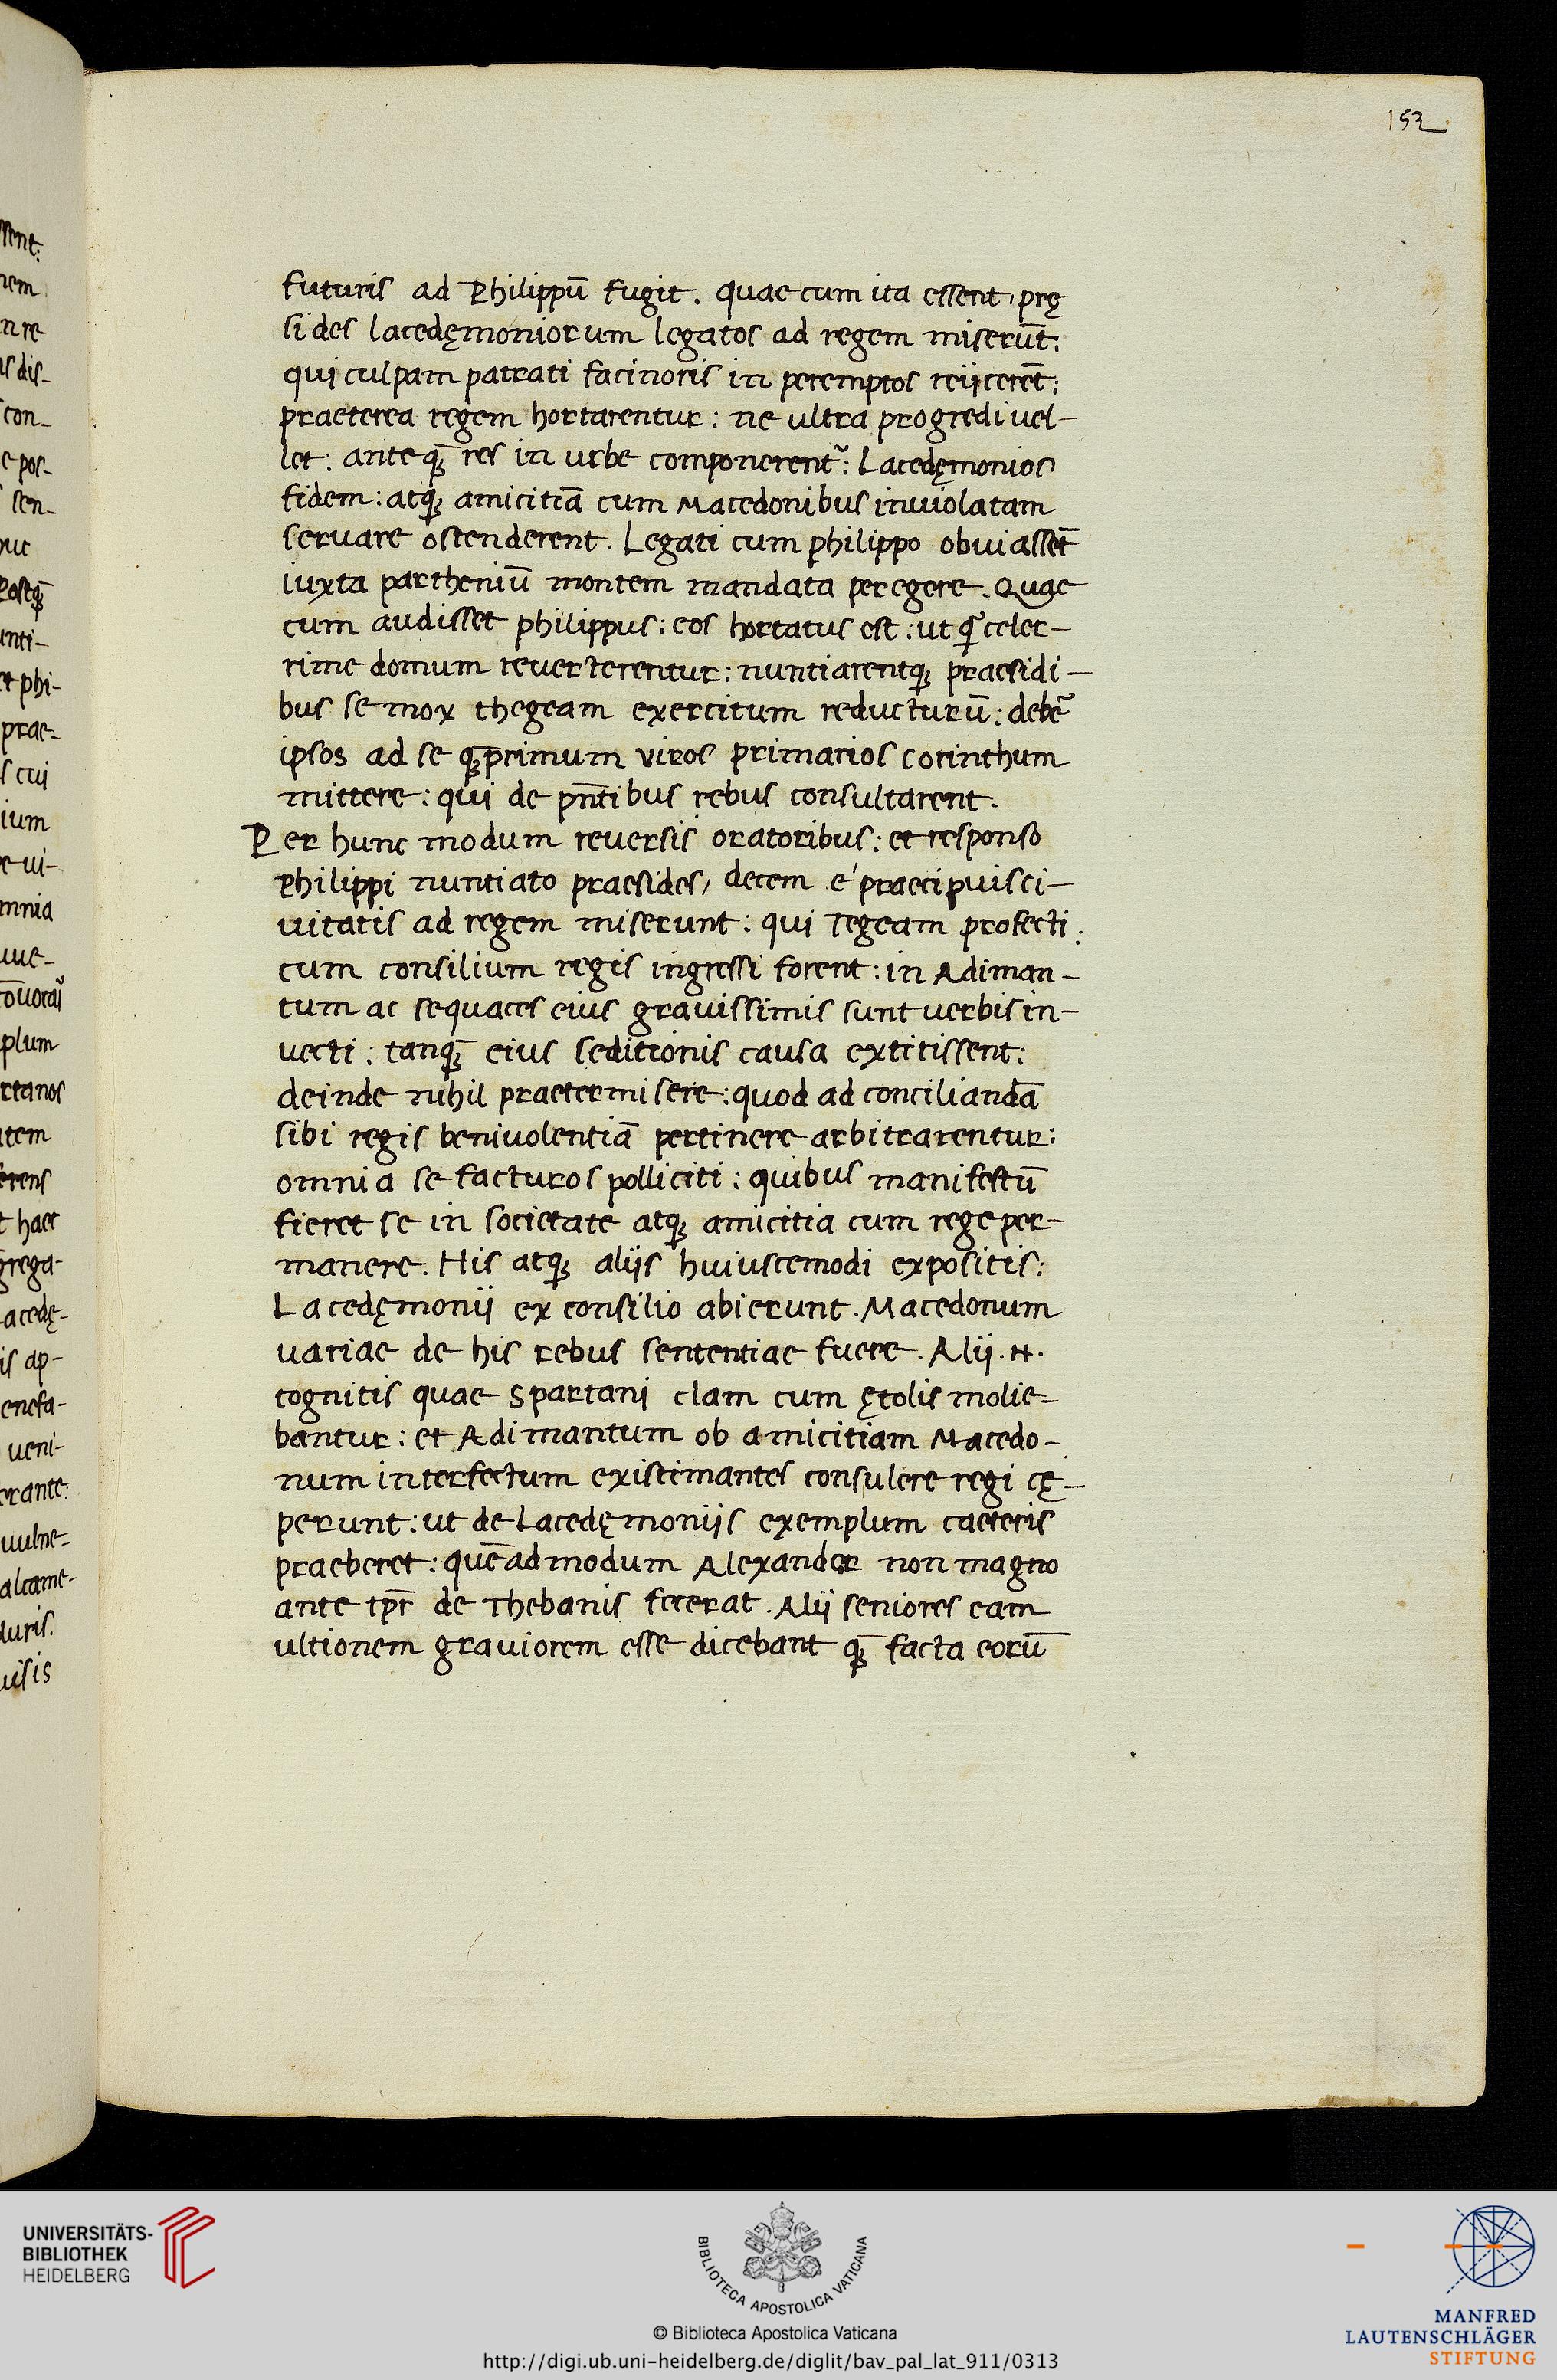 152
futuris ad Philippū fugit. quae cum ita essent, prę
sides lacedęmoniorum legatos ad regem miserūt:
qui culpam patrati facinoris in peremptos reijcerēt:
praeterea regem hortarentur: ne ultra progredi uel-
let: ante q̄ꝫ res in urbe componerent᷑: Lacedęmonios
fidem: atqꝫ amicitiā cum Macedonibus inuiolatam
seruare ostenderent. Legati cum philippo obuiassēt
iuxta partheniū montem mandata peregere. Quae
cum audisset philippus: eos hortatus est: ut q̄ celer-
rime domum reuerterentur: nuntiarentqꝫ praesidi-
bus se mox thegeam exercitum reducturū: debē᷑
ipsos ad se q̄ꝫprimum viros primarios Corinthum
mittere: qui de pn̄tibus rebus consultarent.
Per hunc modum reuersis oratoribus: et responso
Philippi nuntiato praesides, decem é praecipuis ci-
uitatis ad regem miserunt: qui Tegeam profecti:
cum consilium regis ingressi forent: in Adiman-
tum ac sequaces eius grauissimis sunt uerbis in-
uecti: tanq̄ꝫ eius seditionis causa extitissent:
deinde nihil praetermisere: quod ad conciliandā
sibi regis beniuolentiā pertinere arbitrarentur:
omnia se facturos polliciti: quibus manifestū
fieret se in societate atqꝫ amicitia cum rege per-
manere. His atqꝫ alijs huiuscemodi expositis:
Lacedęmonij ex consilio abierunt. Macedonum
uariae de his rebus sententiae fuere. Alij .N.
cognitis quae Spartani clam cum ętolis molie-
bantur: et Adimantum ob amicitiam Macedo-
num interfectum existimantes consulere regi cę-
perunt: ut de Lacedęmonijs exemplum caeteris
praeberet: quēadmodum Alexander non magno
ante tpr̄ de Thebanis fecerat. Alij seniores eam
ultionem grauiorem esse dicebant q̄ꝫ facta eorū
UNIVERSITÄTS-
BIBLIOTHEK
HEIDELBERG
BIBLIOTECA APOSTOLICA VATICANA
© Biblioteca Apostolica Vaticana
http://digi.ub.uni-heidelberg.de/diglit/bav_pal_lat_911/0313
MANFRED
LAUTENSCHLÄGER
STIFTUNG